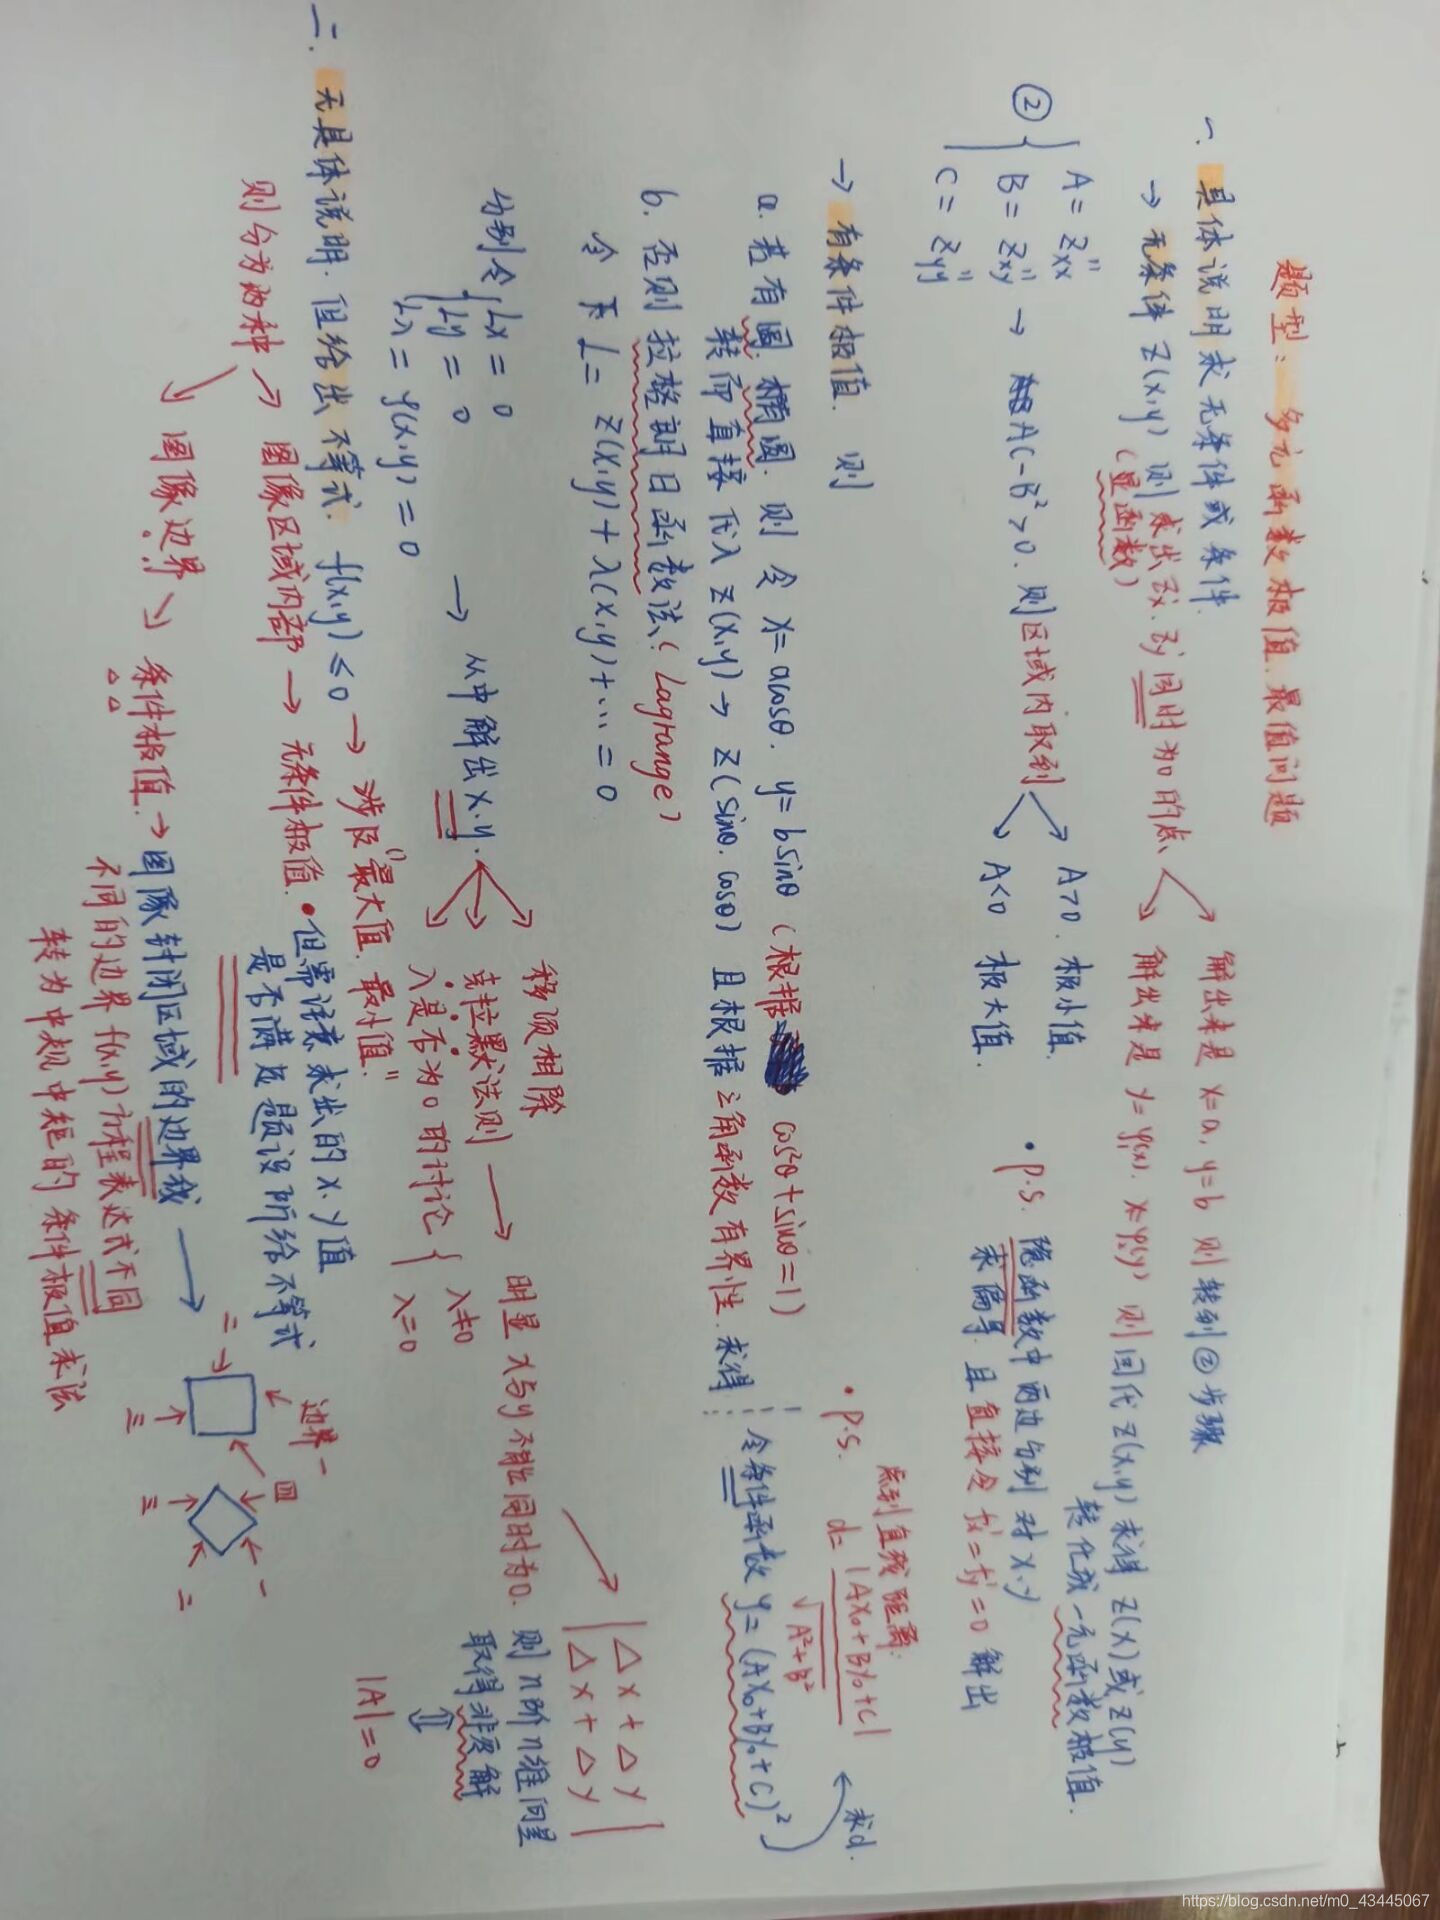 题型：多元函数极值、最值问题
一、具体说明求无条件或条件.
→ 无条件 Z(x,y) 则求出 Z'x、Z'y 同时为0的点
(显函数)
解出来是 x=a, y=b 则转到②步骤
解出来是 y=φ(x). x=φ(y) 则回代 Z(x,y) 求得 Z(x)或Z(y)
转化成一元函数极值.
② { A = Z''xx
B = Z''xy → AC-B²>0. 则区域内取到
C = Z''yy
A>0. 极小值.
A<0 极大值.
• P.S. 隐函数中两边分别对 x.y
求偏导. 且直接令 fx'=fy'=0 解出
→ 有条件极值. 则
a. 若有圆.椭圆. 则令 x=acosθ. y=bsinθ (根据 cos²θ+sin²θ=1)
转而直接代入 Z(x,y) → Z(sinθ.cosθ) 且根据三角函数有界性.求得
• P.S. 点到直线距离:
d= |Ax₀+By₀+C|
√A²+B²
求d.
令条件函数 y=(Ax₀+By₀+C)²
b. 否则拉格朗日函数法 (Lagrange)
令 L = Z(x,y)+λ(x,y)+…=0
分别令 { Lx = 0
Ly = 0
Lλ = φ(x,y) = 0
→ 从中解出x.y.
移项相除
克拉默法则 → 明显 x与y不能同时为0.
λ是否为0的讨论 { λ≠0
λ=0
| △x+△y |
| △x+△y |
则n阶n维向量
取得非零解
⇕
|A|=0
二. 无具体说明. 但给出不等式. f(x,y)≤0 → 涉及"最大值.最小值."
则分为两种
图像区域内部 → 无条件极值. • 但需注意求出的x.y值
是否满足题设所给不等式
图像边界 → 条件极值. → 图像封闭区域的边界线 →
不同的边界 f(x,y) 方程表达式不同
转为中规中矩的条件极值求法
边界一
二
三
四
一
二
三
https://blog.csdn.net/m0_43445067